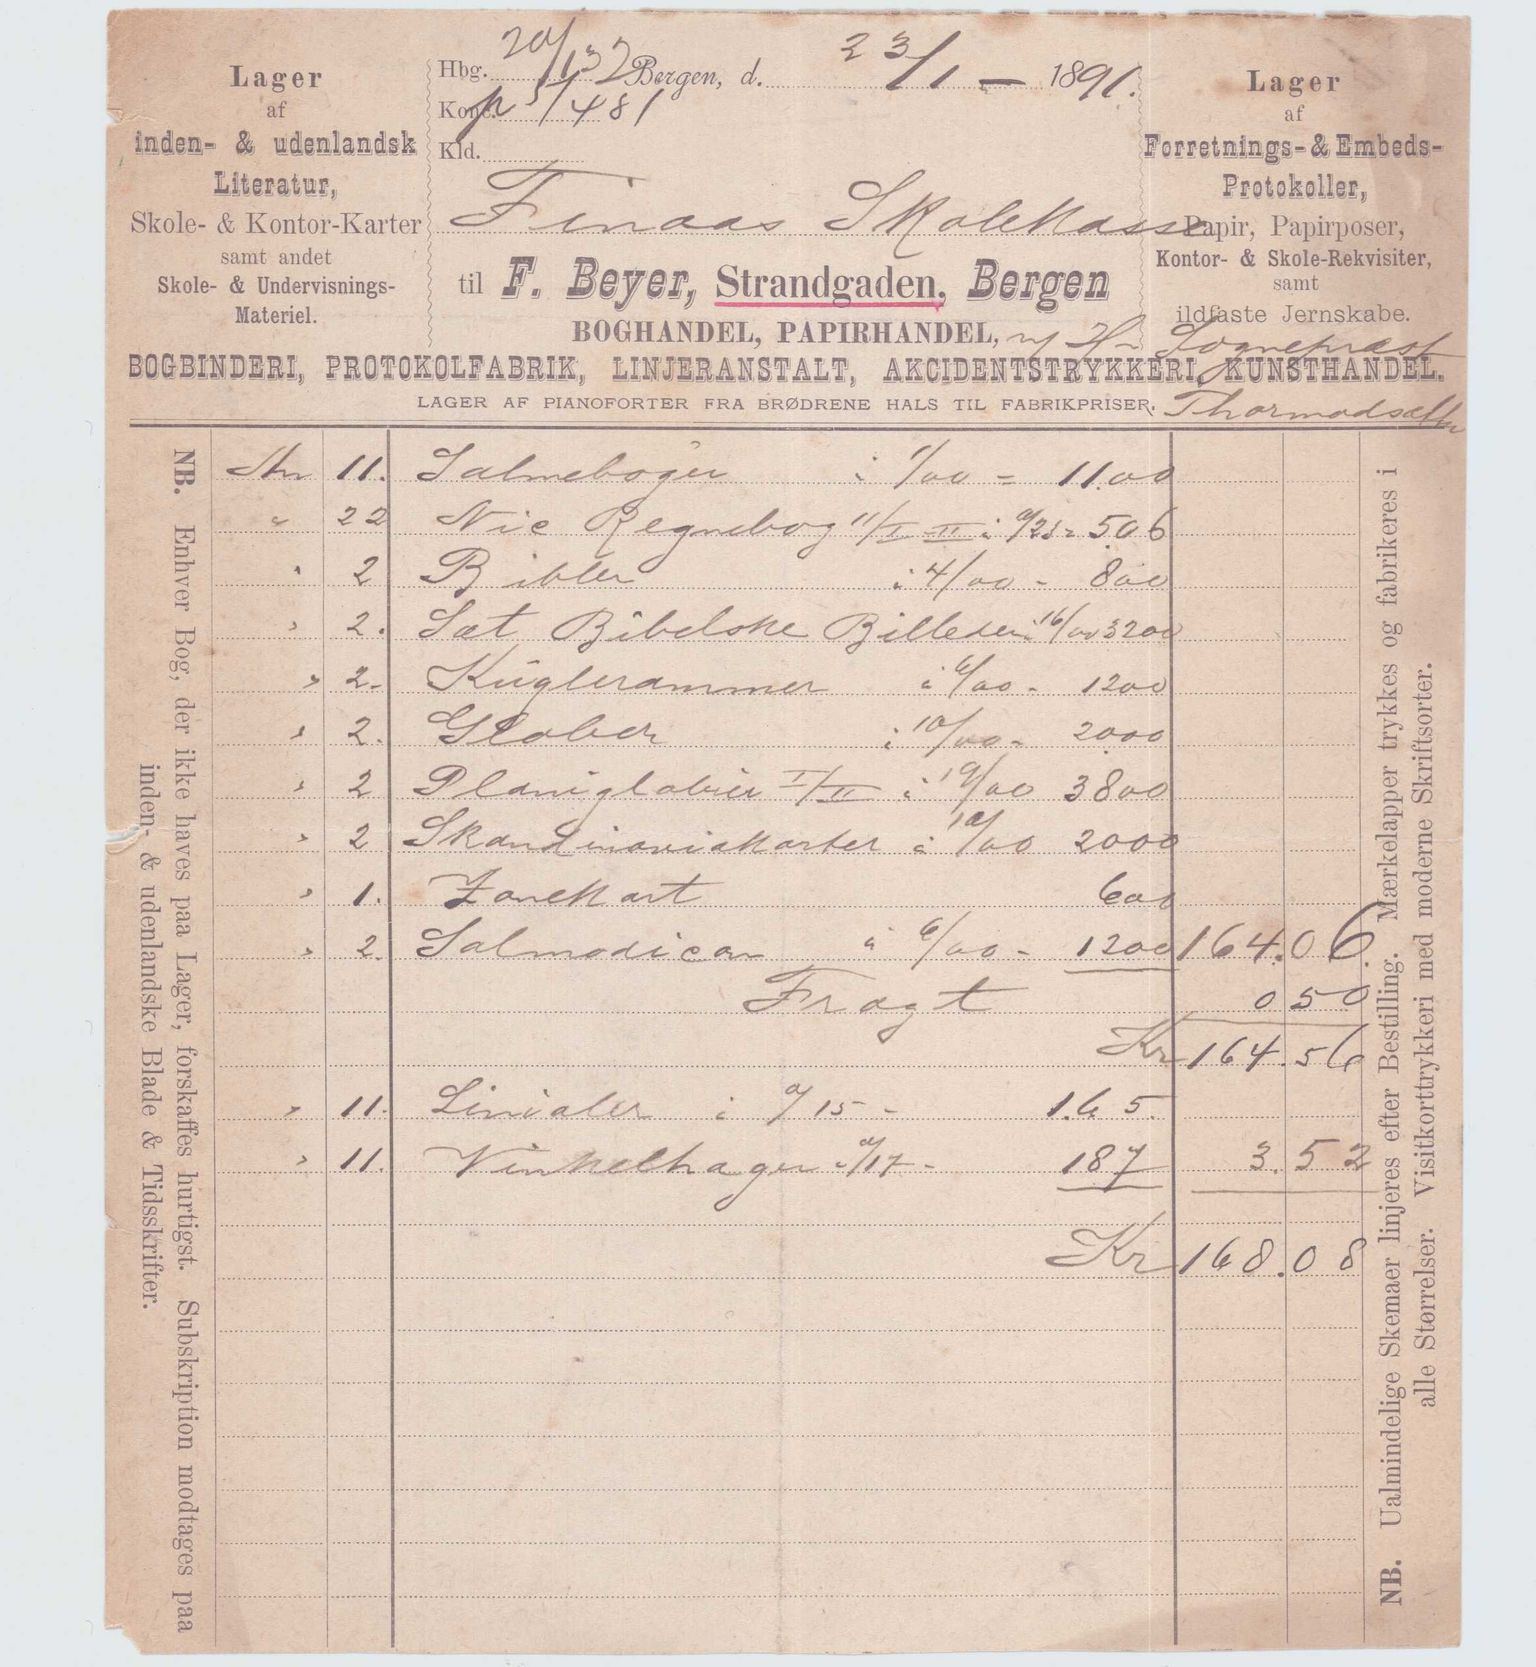 Lager
af
inden- & udenlandsk
Literatur,
Skole- & Kontor-Karter
samt andet
Skole- & Undervisnings-
Materiel.
Hbg. 20/132 Bergen, d. 23/1 - 1891.
Konc. p 5/481
Kld.
Finaas Skolekasse
til F. Beyer, Strandgaden, Bergen
BOGHANDEL, PAPIRHANDEL,
Lager
af
Forretnings- & Embeds-
Protokoller,
Papir, Papirposer,
Kontor- & Skole-Rekvisiter,
samt
ildfaste Jernskabe.
v/ Hr Sognepræst
BOGBINDERI, PROTOKOLFABRIK, LINJERANSTALT, AKCIDENTSTRYKKERI, KUNSTHANDEL.
LAGER AF PIANOFORTER FRA BRØDRENE HALS TIL FABRIKPRISER. Thormodsæter
11. Salmebøger à 1/00 = 11.00
" 22 Nic Regnebog 11/I-II à 0/23 = 5.06
" 2 Bibler à 4/00 - 800
" 2. Sæt Bibelske Billeder 16/00 3200
" 2. Kuglerammer à 6/00 - 1200
" 2. Glober à 10/00 - 2000
" 2 Planiglobier I/II à 19/00 3800
" 2 Skandinaviakarter à 10/00 2000
" 1. Zonekart 600
" 2. Salmodicon à 6/00 - 1200 164.06
Fragt 0 50
Kr 164.56
" 11. Linialer à 0/15 - 1.65.
" 11. Vinkelhager à 0/17 - 187 3.52
Kr 168.08
NB. Enhver Bog, der ikke haves paa Lager, forskaffes hurtigst. Subskription modtages paa
inden- & udenlandske Blade & Tidsskrifter.
NB. Ualmindelige Skemaer linjeres efter Bestilling. Mærkelapper trykkes og fabrikeres i
alle Størrelser. Visitkorttrykkeri med moderne Skriftsorter.